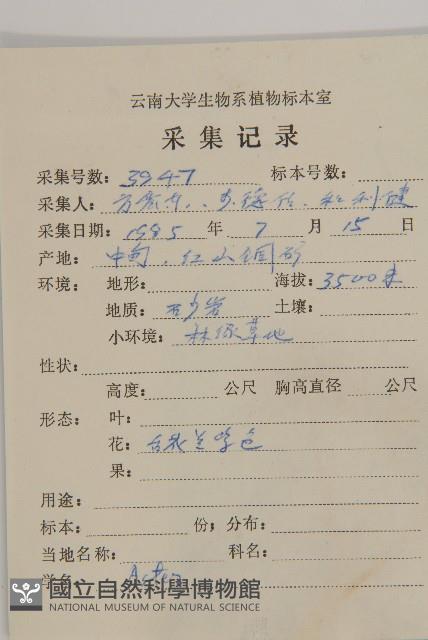 云南大学生物系植物标本室
采集记录
采集号数: 3947 标本号数:
采集人:
采集日期: 1985 年 7 月 15 日
产地: 中甸、红山铜矿
环境: 地形: 海拔: 3500米
地质: 石灰岩 土壤:
小环境: 林缘草地
性状:
高度: 公尺 胸高直径 公尺
形态: 叶:
花:
果:
用途:
标本: 份; 分布:
当地名称: 科名:
学名: Aster
國立自然科學博物館
NATIONAL MUSEUM OF NATURAL SCIENCE